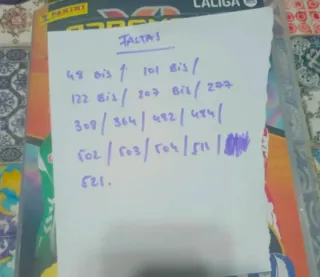 PANINI
LALIGA
FALTAS
48 BIS / 101 BIS /
122 BIS / 207 BIS / 277
308 / 364 / 482 / 484 /
502 / 503 / 504 / 511 /
521.